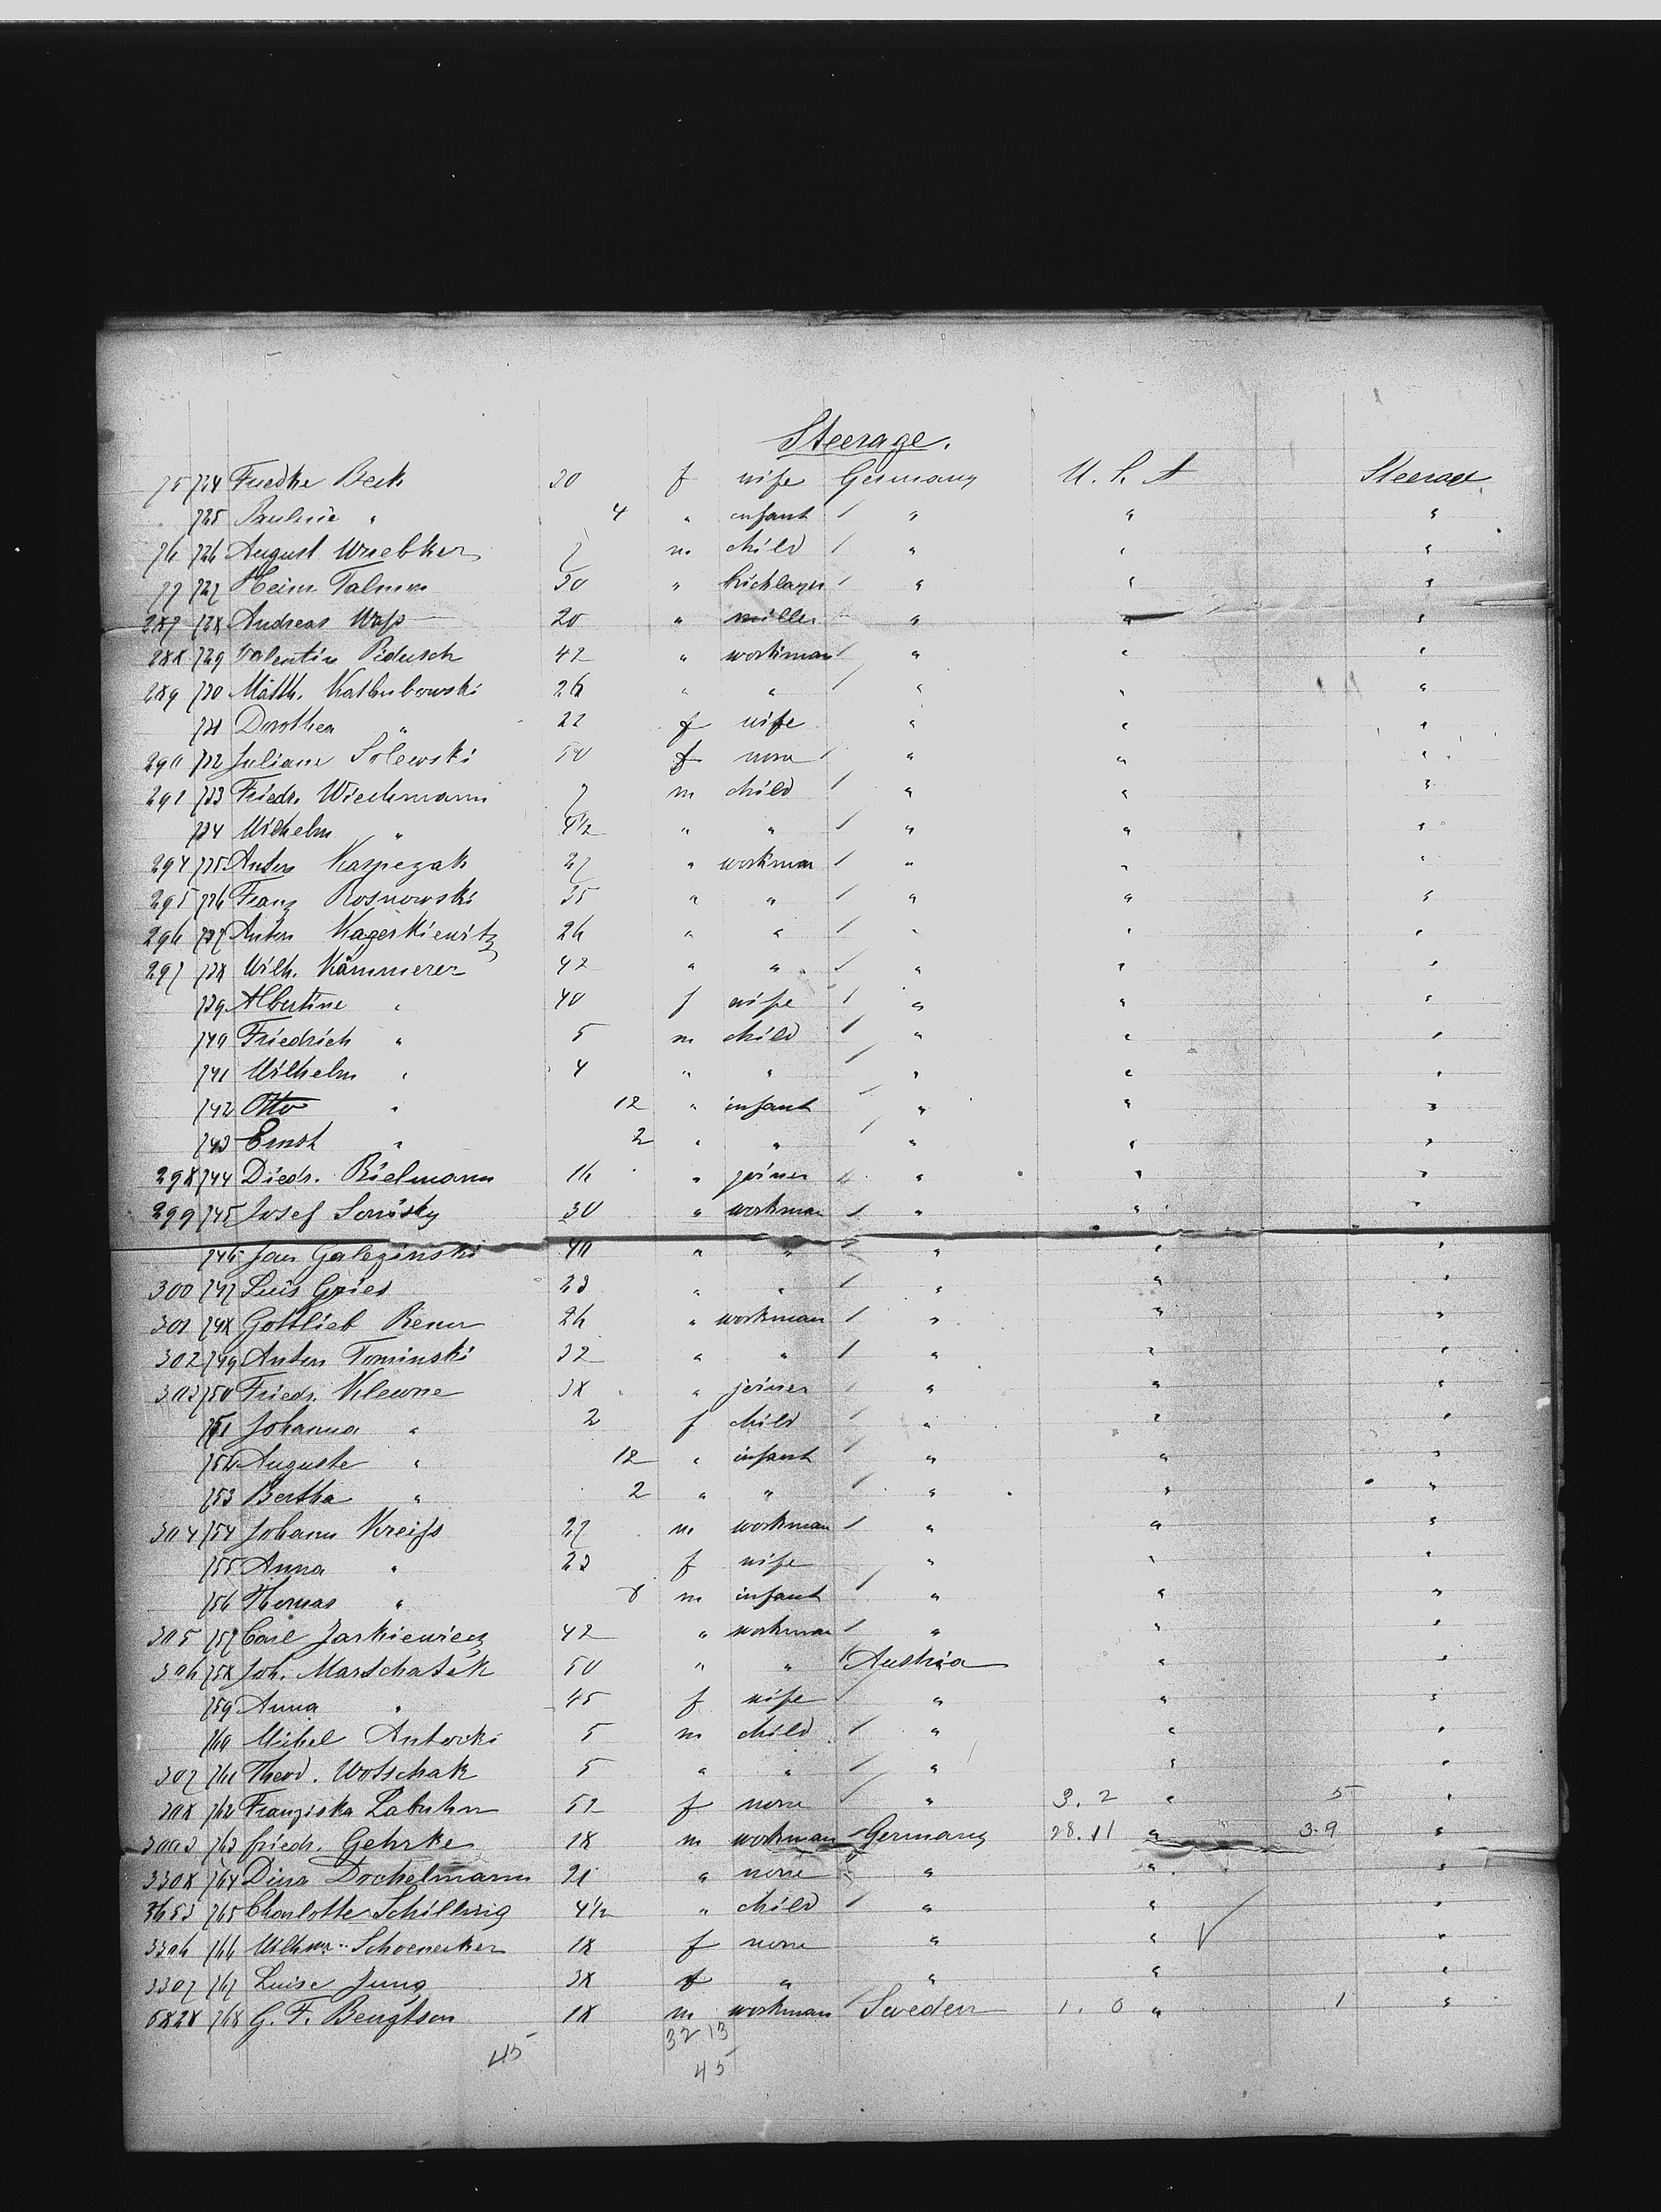 Steerage.
75 724 Friedke Beck 30 f wife Germany U. S. A Steerage
725 Pauline " 4 " infant " " "
76 726 August Wriebker 7 m child " " "
77 727 Heinr. 30 " " " "
287 728 Andreas 20 " miller " " "
288 729 Valentin Pidusch 42 " workman " " "
289 730 Matth. Kathubowski 26 " " " " "
731 Dorothea " 22 f wife " " "
290 732 Juliane Solewski 50 f none " " "
291 733 Friedr. Wiechmann 7 m child " " "
734 Wilhelm " 4½ " " " " "
294 735 Anton Kaspezak 27 " workman " " "
295 736 Franz Rosnowski 35 " " " " "
296 737 Anton Kagerkiewitz 26 " " " " "
297 738 Wilh. Kämmerer 42 " " " " "
739 Albertine " 40 f wife " " "
740 Friedrich " 5 m child " " "
741 Wilhelm " 4 " " " " "
742 Otto " 12 " infant " " "
743 Ernst " 2 " " " " "
298 744 Diedr. Bielmann 16 " joiner " " "
299 745 Josef 30 " workman " " "
746 Jan Galezinski 40 " " " " "
300 747 Luis Gries 23 " " " " "
301 748 Gottlieb Renn 26 " workman " " "
302 749 Anton Tominski 32 " " " " "
303 750 Friedr. Klewne 38 " joiner " " "
751 Johanna " 2 f child " " "
752 Auguste " 12 " infant " " "
753 Bertha " 2 " " " " "
304 754 Johann Kreiss 27 m workman " " "
755 Anna " 23 f wife " " "
756 Thomas " 8 m infant " " "
305 757 Carl Jarkiewicz 42 " workman " " "
306 758 Joh. Marschalek 50 " " Austria " "
759 Anna " 45 f wife " " "
760 Michel Antocki 5 m child " " "
307 761 Theod. Wotschak 5 " " " " "
308 762 Franziska Labuhn 52 f none " 3. 2 " 5 "
3003 763 Friedr. Gehrke 18 m workman Germany 28. 11 " 3-9 "
3308 764 Dina Dochelmann 21 " none " " "
3653 765 Charlotte Schilling 4½ " child " " "
3306 766 Schoenecker 18 f none " " "
3307 767 Luise Jung 38 f " " " "
6828 768 G. F. Bengtson 18 m workman Sweden 1. 0 " 1 "
45 32 13
45